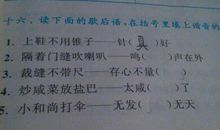 十六、读下面的歇后语,在括号里填上谐音的
1. 上鞋不用锥子——针(真)好
2. 隔着门缝吹喇叭——鸣( )声在外
3. 裁缝不带尺——存心不量( )
4. 炒咸菜放盐巴——太咸( )了
5. 小和尚打伞——无发( )无天